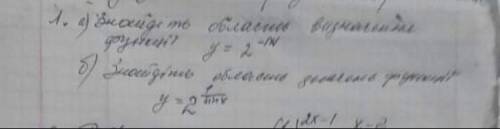 1. а) Знайдіть область визначення
функції y = 2^{-|x|}
б) Знайдіть область функції
y = 2^{\frac{1}{\sin x}}
2x-1 x-2